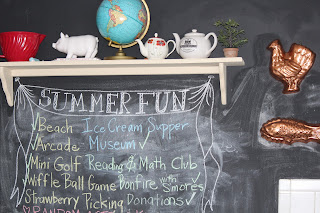 SUMMER FUN
✓Beach Ice Cream Supper
✓Arcade Museum ✓
✓Mini Golf Reading & Math Club
✓Wiffle Ball Game Bonfire with S'mores
Strawberry Picking Donations ✓
RANDOM